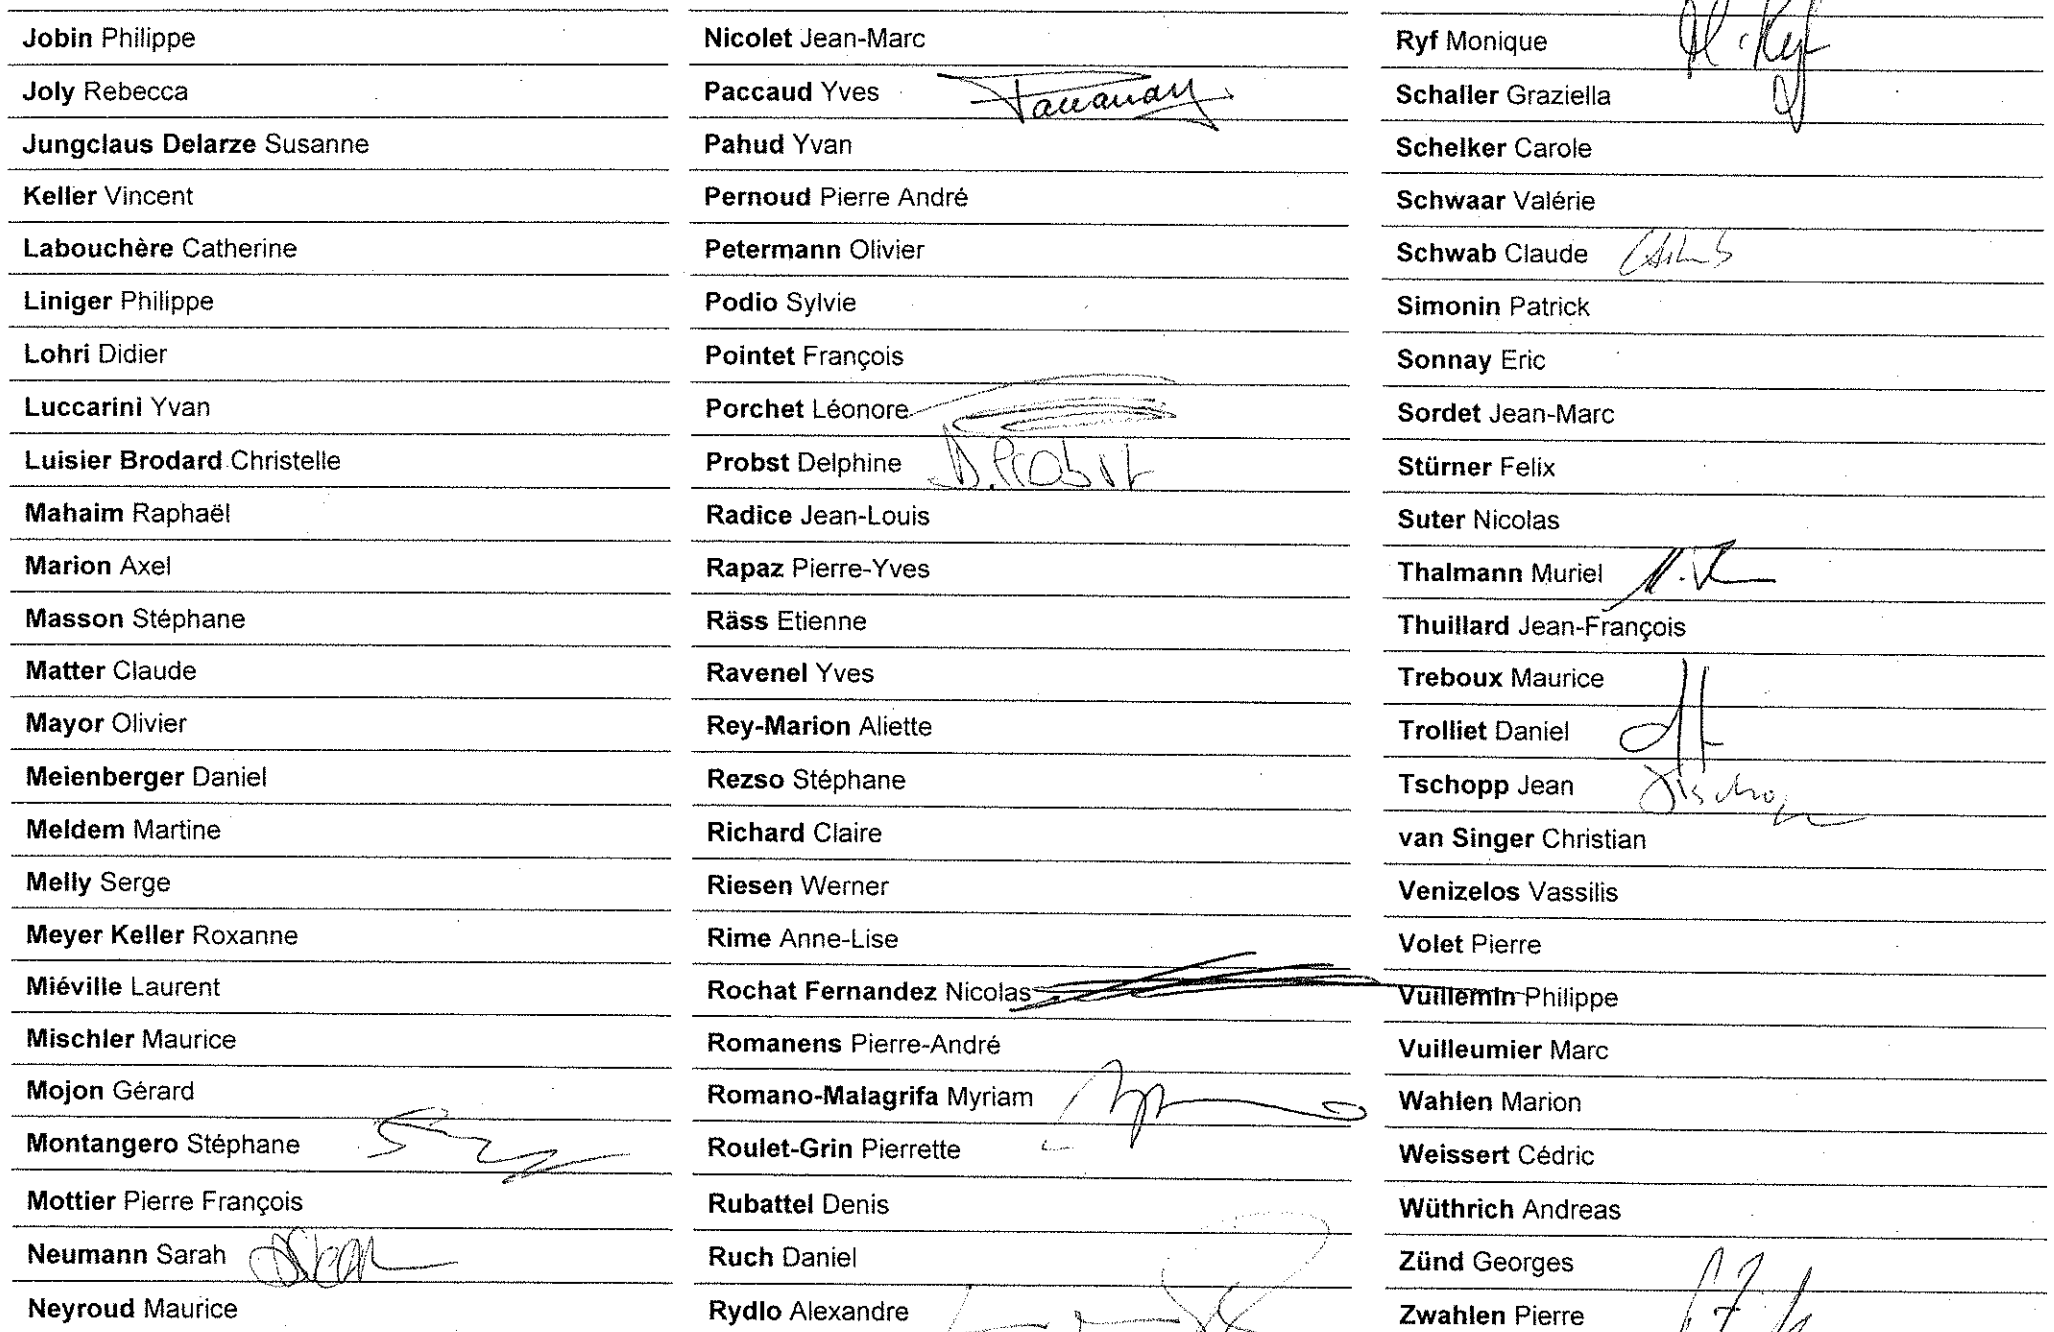 Jobin Philippe
Joly Rebecca
Jungclaus Delarze Susanne
Keller Vincent
Labouchère Catherine
Liniger Philippe
Lohri Didier
Luccarini Yvan
Luisier Brodard Christelle
Mahaim Raphaël
Marion Axel
Masson Stéphane
Matter Claude
Mayor Olivier
Meienberger Daniel
Meldem Martine
Melly Serge
Meyer Keller Roxanne
Miéville Laurent
Mischler Maurice
Mojon Gérard
Montangero Stéphane
Mottier Pierre François
Neumann Sarah
Neyroud Maurice
Nicolet Jean-Marc
Paccaud Yves
Pahud Yvan
Pernoud Pierre André
Petermann Olivier
Podio Sylvie
Pointet François
Porchet Léonore
Probst Delphine D. Probst
Radice Jean-Louis
Rapaz Pierre-Yves
Räss Etienne
Ravenel Yves
Rey-Marion Aliette
Rezso Stéphane
Richard Claire
Riesen Werner
Rime Anne-Lise
Rochat Fernandez Nicolas
Romanens Pierre-André
Romano-Malagrifa Myriam
Roulet-Grin Pierrette
Rubattel Denis
Ruch Daniel
Rydlo Alexandre
Ryf Monique
Schaller Graziella
Schelker Carole
Schwaar Valérie
Schwab Claude
Simonin Patrick
Sonnay Eric
Sordet Jean-Marc
Stürner Felix
Suter Nicolas
Thalmann Muriel
Thuillard Jean-François
Treboux Maurice
Trolliet Daniel
Tschopp Jean
van Singer Christian
Venizelos Vassilis
Volet Pierre
Vuillemin Philippe
Vuilleumier Marc
Wahlen Marion
Weissert Cédric
Wüthrich Andreas
Zünd Georges
Zwahlen Pierre